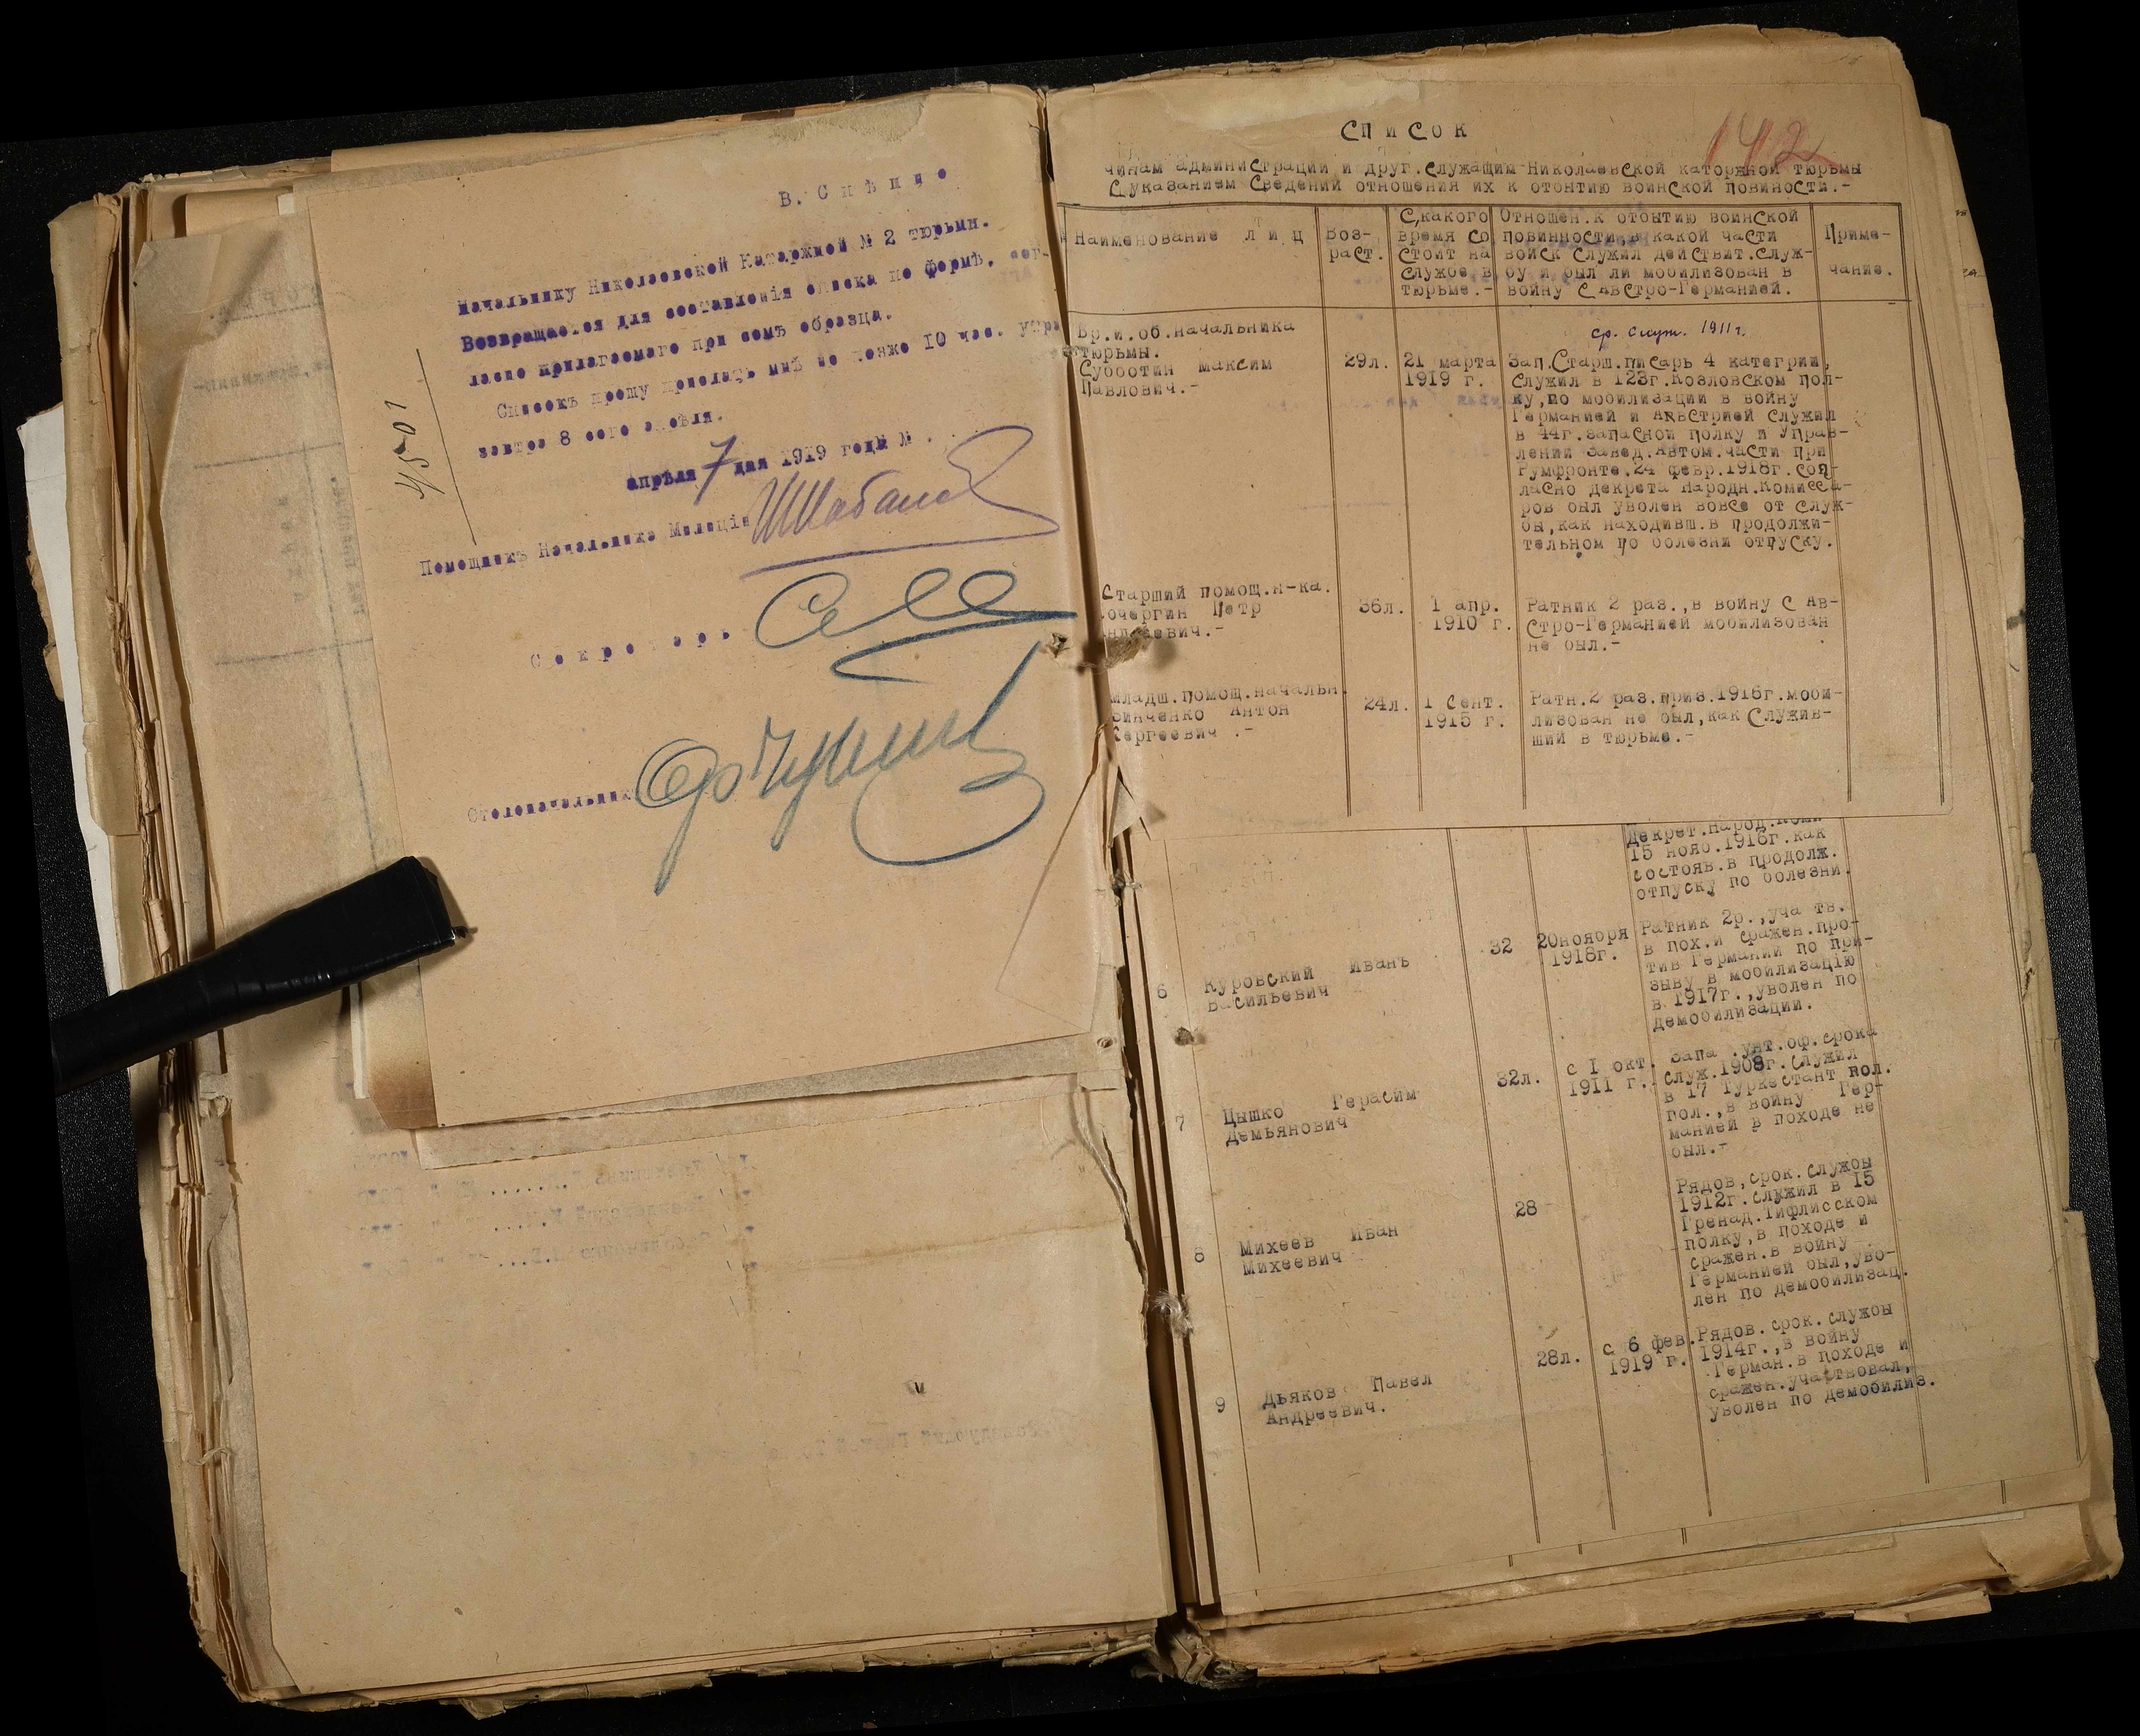 В. Спѣшно
Начальнику Николаевской Каторжной № 2 тюрьмы.
Возвращается для составленія списка по формѣ, сог-
ласно прилагаемаго при семъ образца.
Списокъ прошу прислать мнѣ не позже 10 час. утра
завтра 8 сего апрѣля.
апрѣля 7 дня 1919 года №
4501
Помощникъ Начальника Милиціи
Секретарь
Столоначальникъ
142
СПИСОК
чинам администрации и друг.служащим Николаевской каторжной тюрьмы
с указанием сведений отношения их к отбытию воинской повиности.-
Наименование лиц
Воз-
раст.
С какого
время со
стоит на
службе в
тюрьме.-
Отношен.к отбытию воинской
повинности, в какой части
войск служил действит.служ-
бу и был ли мобилизован в
войну с Австро-Германией.
Приме-
чание.
Вр.и.об.начальника
тюрьмы.
Субботин Максим
Павлович.-
29л.
21 марта
1919 г.
ср. служ. 1911 г.
Зап.Старш.писарь 4 категрии,
служил в 123г.Козловском пол-
ку,по мобилизации в войну
Германией и Австрией служил
в 44г.запасной полку и Управ-
лении Завед.Автом.части при
Румфронте.24 февр.1918г.сог-
ласно декрета Народн.Комисса-
ров был уволен вовсе от служ-
бы,как находивш.в продолжи-
тельном по болезни отпуску.
Старший помощ.н-ка.
очергин Петр
ндреевич.-
36л.
1 апр.
1910 г.
Ратник 2 раз.,в войну с Ав-
стро-Германией мобилизован
не был.-
младш.помощ.начальн.
инченко Антон
Сергеевич .-
24л.
1 сент.
1915 г.
Ратн.2 раз.приз.1916г.моби-
лизован не был,как служив-
ший в тюрьме.-
Декрет.народ.Ком.
15 нояб.1918г.как
состояв.в продолж.
отпуску по болезни.
6
Куровский Иванъ
Васильевич
32
20ноября
1918г.
Ратник 2р.,уча тв.
в пох.и сражен.про-
тив Германии по при-
зыву в мобилизацію
в.1917г.,уволен по
демобилизации.
7
Цышко Герасим
Демьянович
32л.
с I окт.
1911 г.
Запа .унт.оф.срока
служ.1908г.служил
в 17 Туркестант пол.
пол.,в войну Гер-
манией в походе не
был.-
8
Михеев Иван
Михеевич
28
Рядов,срок.службы
1912г.служил в 15
Гренад.Тифлисском
полку,в походе и
сражен.в войну
Германией был,уво-
лен по демобилизац.
9
Дьяков Павел
Андреевич.
28л.
с 6 фев.
1919 г.
Рядов.срок.службы
1914г.,в войну
Герман.в походе и
сражен.участвовал,
уволен по демобилиз.